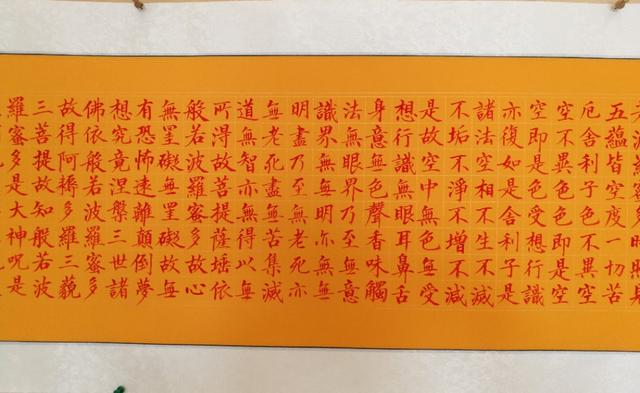 五蘊皆空度一切苦
厄舍利子色不異空
空不異色色即是空
空即是色受想行識
亦復如是舍利子是
諸法空相不生不滅
不垢不淨不增不減
是故空中無色無受
想行識無眼耳鼻舌
身意無色聲香味觸
法無眼界乃至無意
識界無無明亦無無
明盡乃至無老死亦
無老死盡無苦集滅
道無智亦無得以無
所得故菩提薩埵依
般若波羅蜜多故心
無罣礙無罣礙故無
有恐怖遠離顛倒夢
想究竟涅槃三世諸
佛依般若波羅蜜多
故得阿耨多羅三藐
三菩提故知般若波
羅蜜多是大神呪是